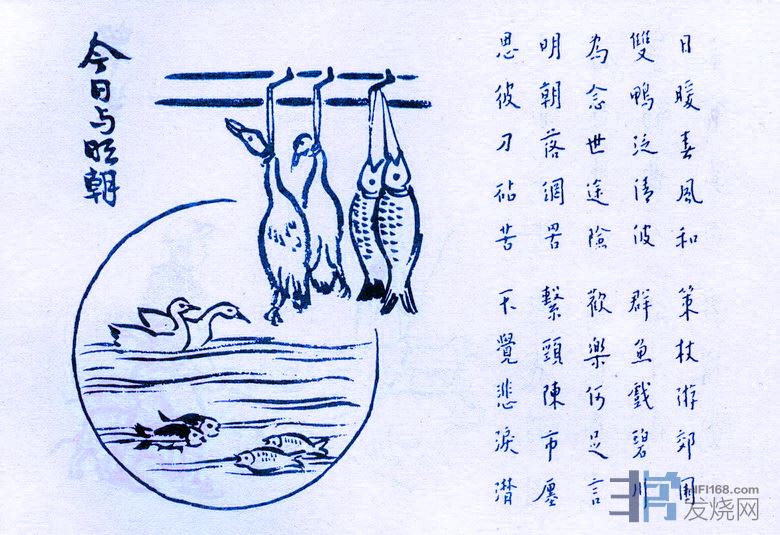 今日与明朝
日暖春風和 策杖游郊園
雙鴨泛清波 群魚戲碧川
為念世途險 歡樂何足言
明朝落網罟 繫頸陳市廛
思彼刀砧苦 不覺悲淚潸
HIFI168.com
发烧网